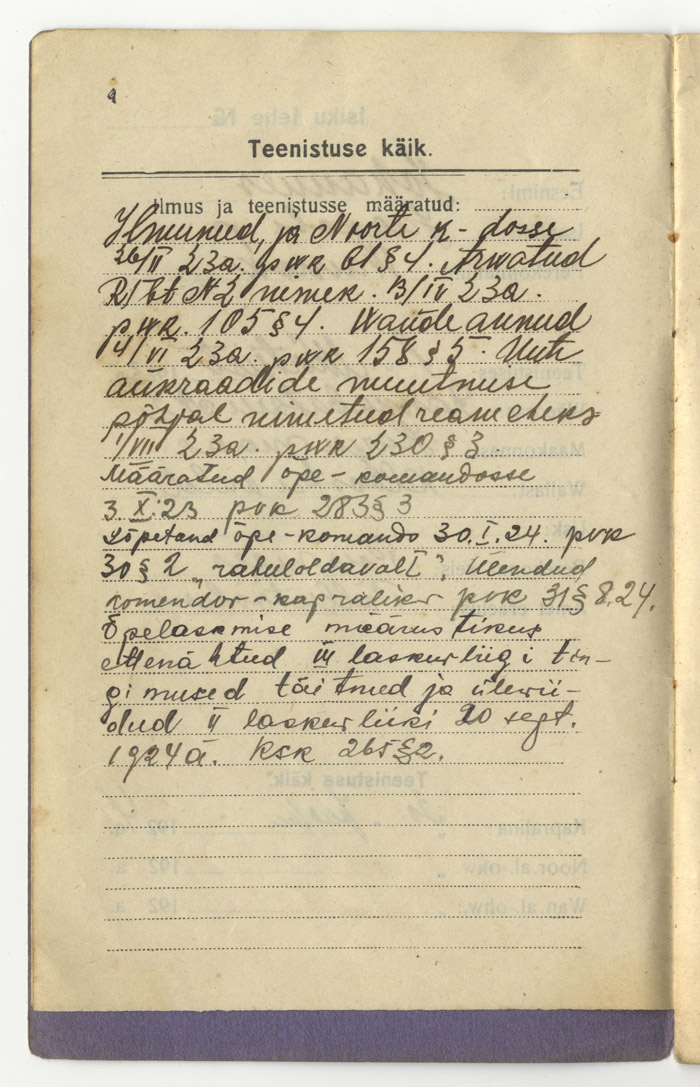 4
Teenistuse käik.
Ilmus ja teenistusse määratud:
Ilmunud ja Noorte k-dosse
26/II 23a. pwk 61 § 4. Arwatud
RTbt №2 nimek. 13/IV 23a.
pwk. 105 § 4. Wande annud
14/VI 23a. pwk 158 § 5. Uute
aukraadide muutmuse
põhjal nimetud reameheks
1/VII 23a. pwk 230 § 3.
Määratud õpe-komandosse
3.X.23 pvk 283 § 3
Lõpetand õpe-komando 30.I.24. pvk
30 § 2 „rahuloldavalt“. Ülendud
komendor-kapraliks pvk 31 § 8.24.
Õpelaskmise määrustikus
ettenähtud III laskurliigi tin-
gimused täitnud ja ülewii-
dud II laskurliiki 20 sept.
1924 a. KSK 265 § 2.